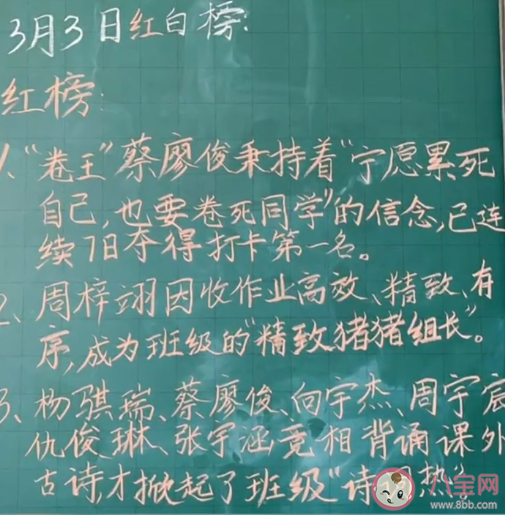 3月3日红白榜:
红榜:
1、“卷王”蔡廖俊秉持着“宁愿累死
自己,也要卷死同学”的信念,已连
续7日夺得打卡第一名。
2、周梓翊因收作业高效、精致、有
序,成为班级的“精致猪猪组长”。
3、杨骐瑞、蔡廖俊、向宇杰、周宇宸
仇俊琳、张宇涵竞相背诵课外
古诗才掀起了班级“诗词热”
八宝网
www.8bb.com